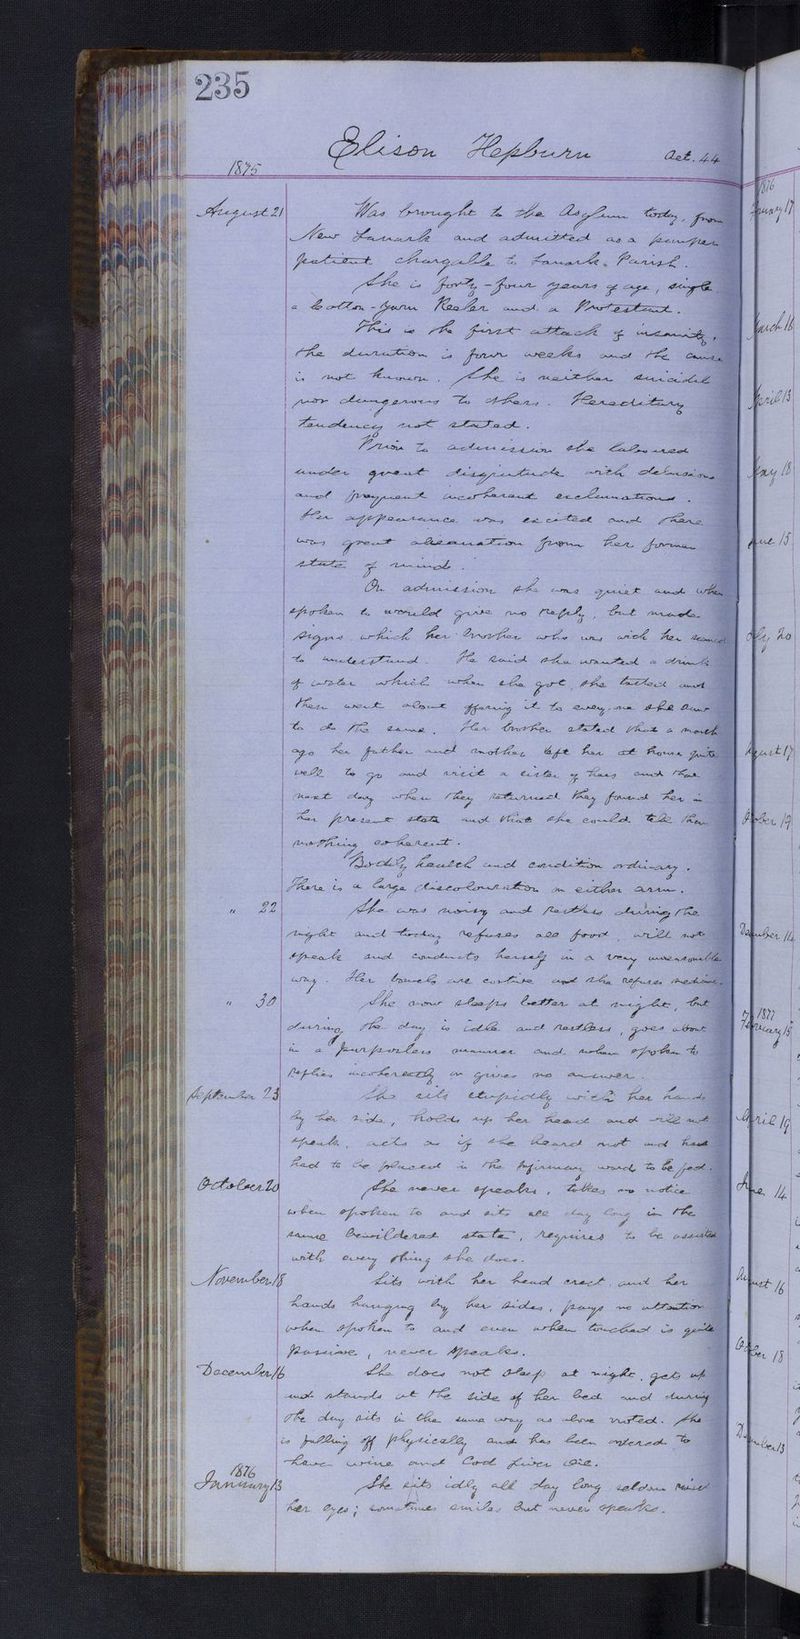 235
Elison Hepburn Aet. 44
1875
August 21 Was brought to the Asylum today, from
New Lanark and admitted as a pauper
patient chargable to Lanark Parish.
She is forty-four years of age, single
a Cotton-Yarn Reeler and a Protestant.
This is the first attack of insanity,
the duration is four weeks and the cause
is not known. She is neither suicidal
nor dangerous to others. Hereditary
tendency not stated.
Prior to admission she laboured
under great disquietude with delusions
and frequent incoherent exclamations.
Her appearance was excited and there
was great from her former
state of mind.
On admission she was quiet and when
spoken to would give no reply, but made
signs which her brother who was with her seemed
to understand. He said she wanted a drink
of water which when she got, she tasted and
then went about offering it to every one she saw
to do the same. Her brother stated that a month
ago her father and mother left her at home quite
well to go and visit a sister of hers and that
next day when they returned they found her in
her present state and that she could tell them
nothing coherent.
Bodily health and condition ordinary.
There is a large discolouration on either arm.
" 22 She was noisy and restless during the
night and today refuses all food, will not
speak and conducts herself in a very unreasonable
way. Her bowels are costive and she refuses medicine.
" 30 She now sleeps better at night, but
during the day is idle and restless, goes about
in a purposless manner and when spoken to
replies incoherently or gives no answer.
September 23 She sits stupidly with her hands
by her side, holds up her head and will not
speak, acts as if she heard not and has
had to be placed in the Infirmary ward to be fed.
October 20 She never speaks, takes no notice
when spoken to and sits all day long in the
same bewildered state, requires to be assisted
with every thing she does.
November 18 Sits with her head erect and her
hands hanging by her sides, pays no attention
when spoken to and even when touched is quite
passive, never speaks.
December 16 She does not sleep at night, gets up
and stands at the side of her bed and during
the day sits in the same way as above noted. She
is falling off physically and has been ordered to
have wine and Cod Liver Oil.
1876
January 13 She sits idly all day long seldom raises
her eyes; sometimes smiles but never speaks.
1876
17
March 16
April 13
May 18
15
20
17
19
December 14
1877
February 15
April 19
June 14
16
18
December 13